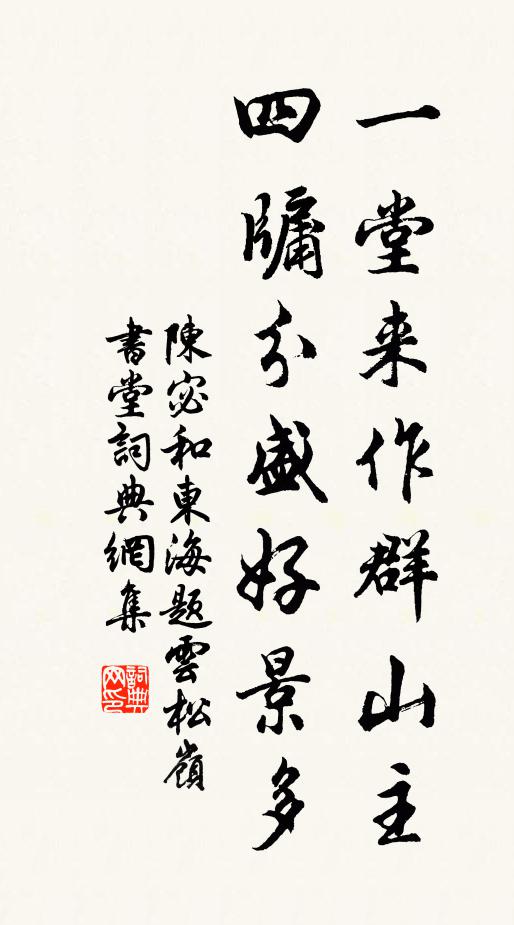 一堂来作群山主
四牗分盛好景多
陳宓和東海題雲松嶺
書堂詞典網集
詞典网印